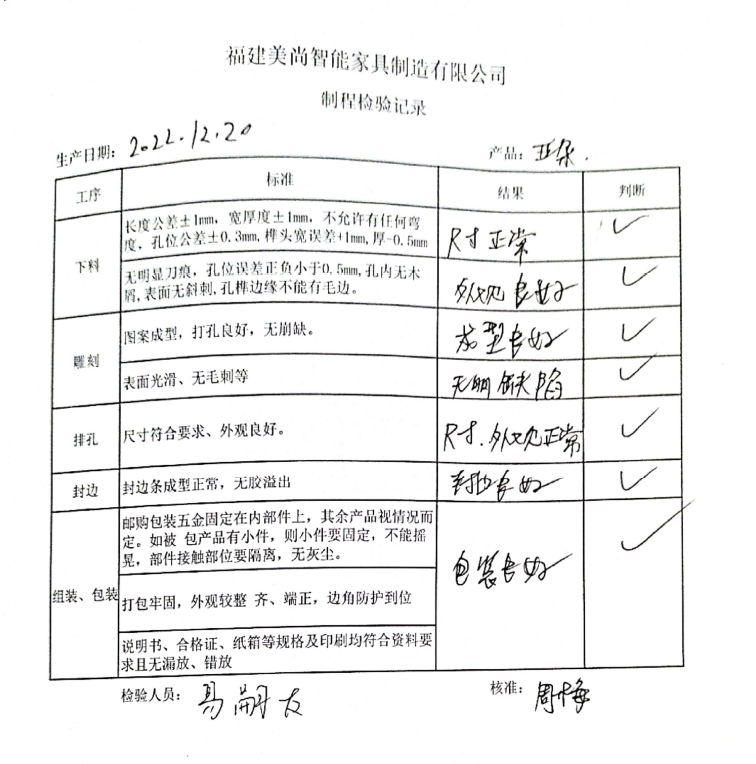 福建美尚智能家具制造有限公司
制程检验记录
生产日期: 2022.12.20
产品: 亚朵.
工序 标准 结果 判断
下料
长度公差±1mm, 宽厚度±1mm, 不允许有任何弯
度, 孔位公差±0.3mm, 榫头宽误差+1mm, 厚-0.5mm
尺寸正常 ✓
无明显刀痕, 孔位误差正负小于0.5mm, 孔内无木
屑, 表面无斜刺, 孔榫边缘不能有毛边。
外观良好 ✓
雕刻
图案成型, 打孔良好, 无崩缺。
成型良好 ✓
表面光滑、无毛刺等
无明显缺陷 ✓
排孔
尺寸符合要求、外观良好。
尺寸.外观正常 ✓
封边
封边条成型正常, 无胶溢出
封边良好 ✓
组装、包装
邮购包装五金固定在内部件上, 其余产品视情况而
定。如被 包产品有小件, 则小件要固定, 不能摇
晃, 部件接触部位要隔离, 无灰尘。
包装良好 ✓
打包牢固, 外观较整 齐、端正, 边角防护到位
说明书、合格证、纸箱等规格及印刷均符合资料要
求且无漏放、错放
检验人员: 易嗣友
核准: 周梅